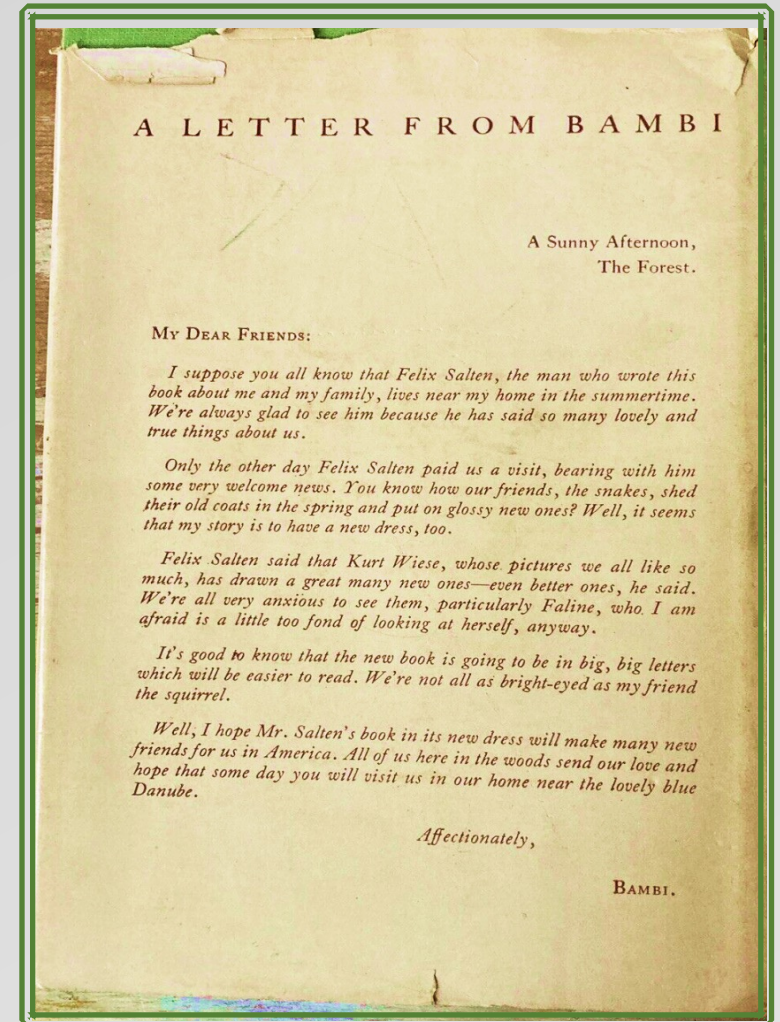 A LETTER FROM BAMBI
A Sunny Afternoon,
The Forest.
My Dear Friends:
I suppose you all know that Felix Salten, the man who wrote this
book about me and my family, lives near my home in the summertime.
We're always glad to see him because he has said so many lovely and
true things about us.
Only the other day Felix Salten paid us a visit, bearing with him
some very welcome news. You know how our friends, the snakes, shed
their old coats in the spring and put on glossy new ones? Well, it seems
that my story is to have a new dress, too.
Felix Salten said that Kurt Wiese, whose pictures we all like so
much, has drawn a great many new ones—even better ones, he said.
We're all very anxious to see them, particularly Faline, who I am
afraid is a little too fond of looking at herself, anyway.
It's good to know that the new book is going to be in big, big letters
which will be easier to read. We're not all as bright-eyed as my friend
the squirrel.
Well, I hope Mr. Salten's book in its new dress will make many new
friends for us in America. All of us here in the woods send our love and
hope that some day you will visit us in our home near the lovely blue
Danube.
Affectionately,
Bambi.